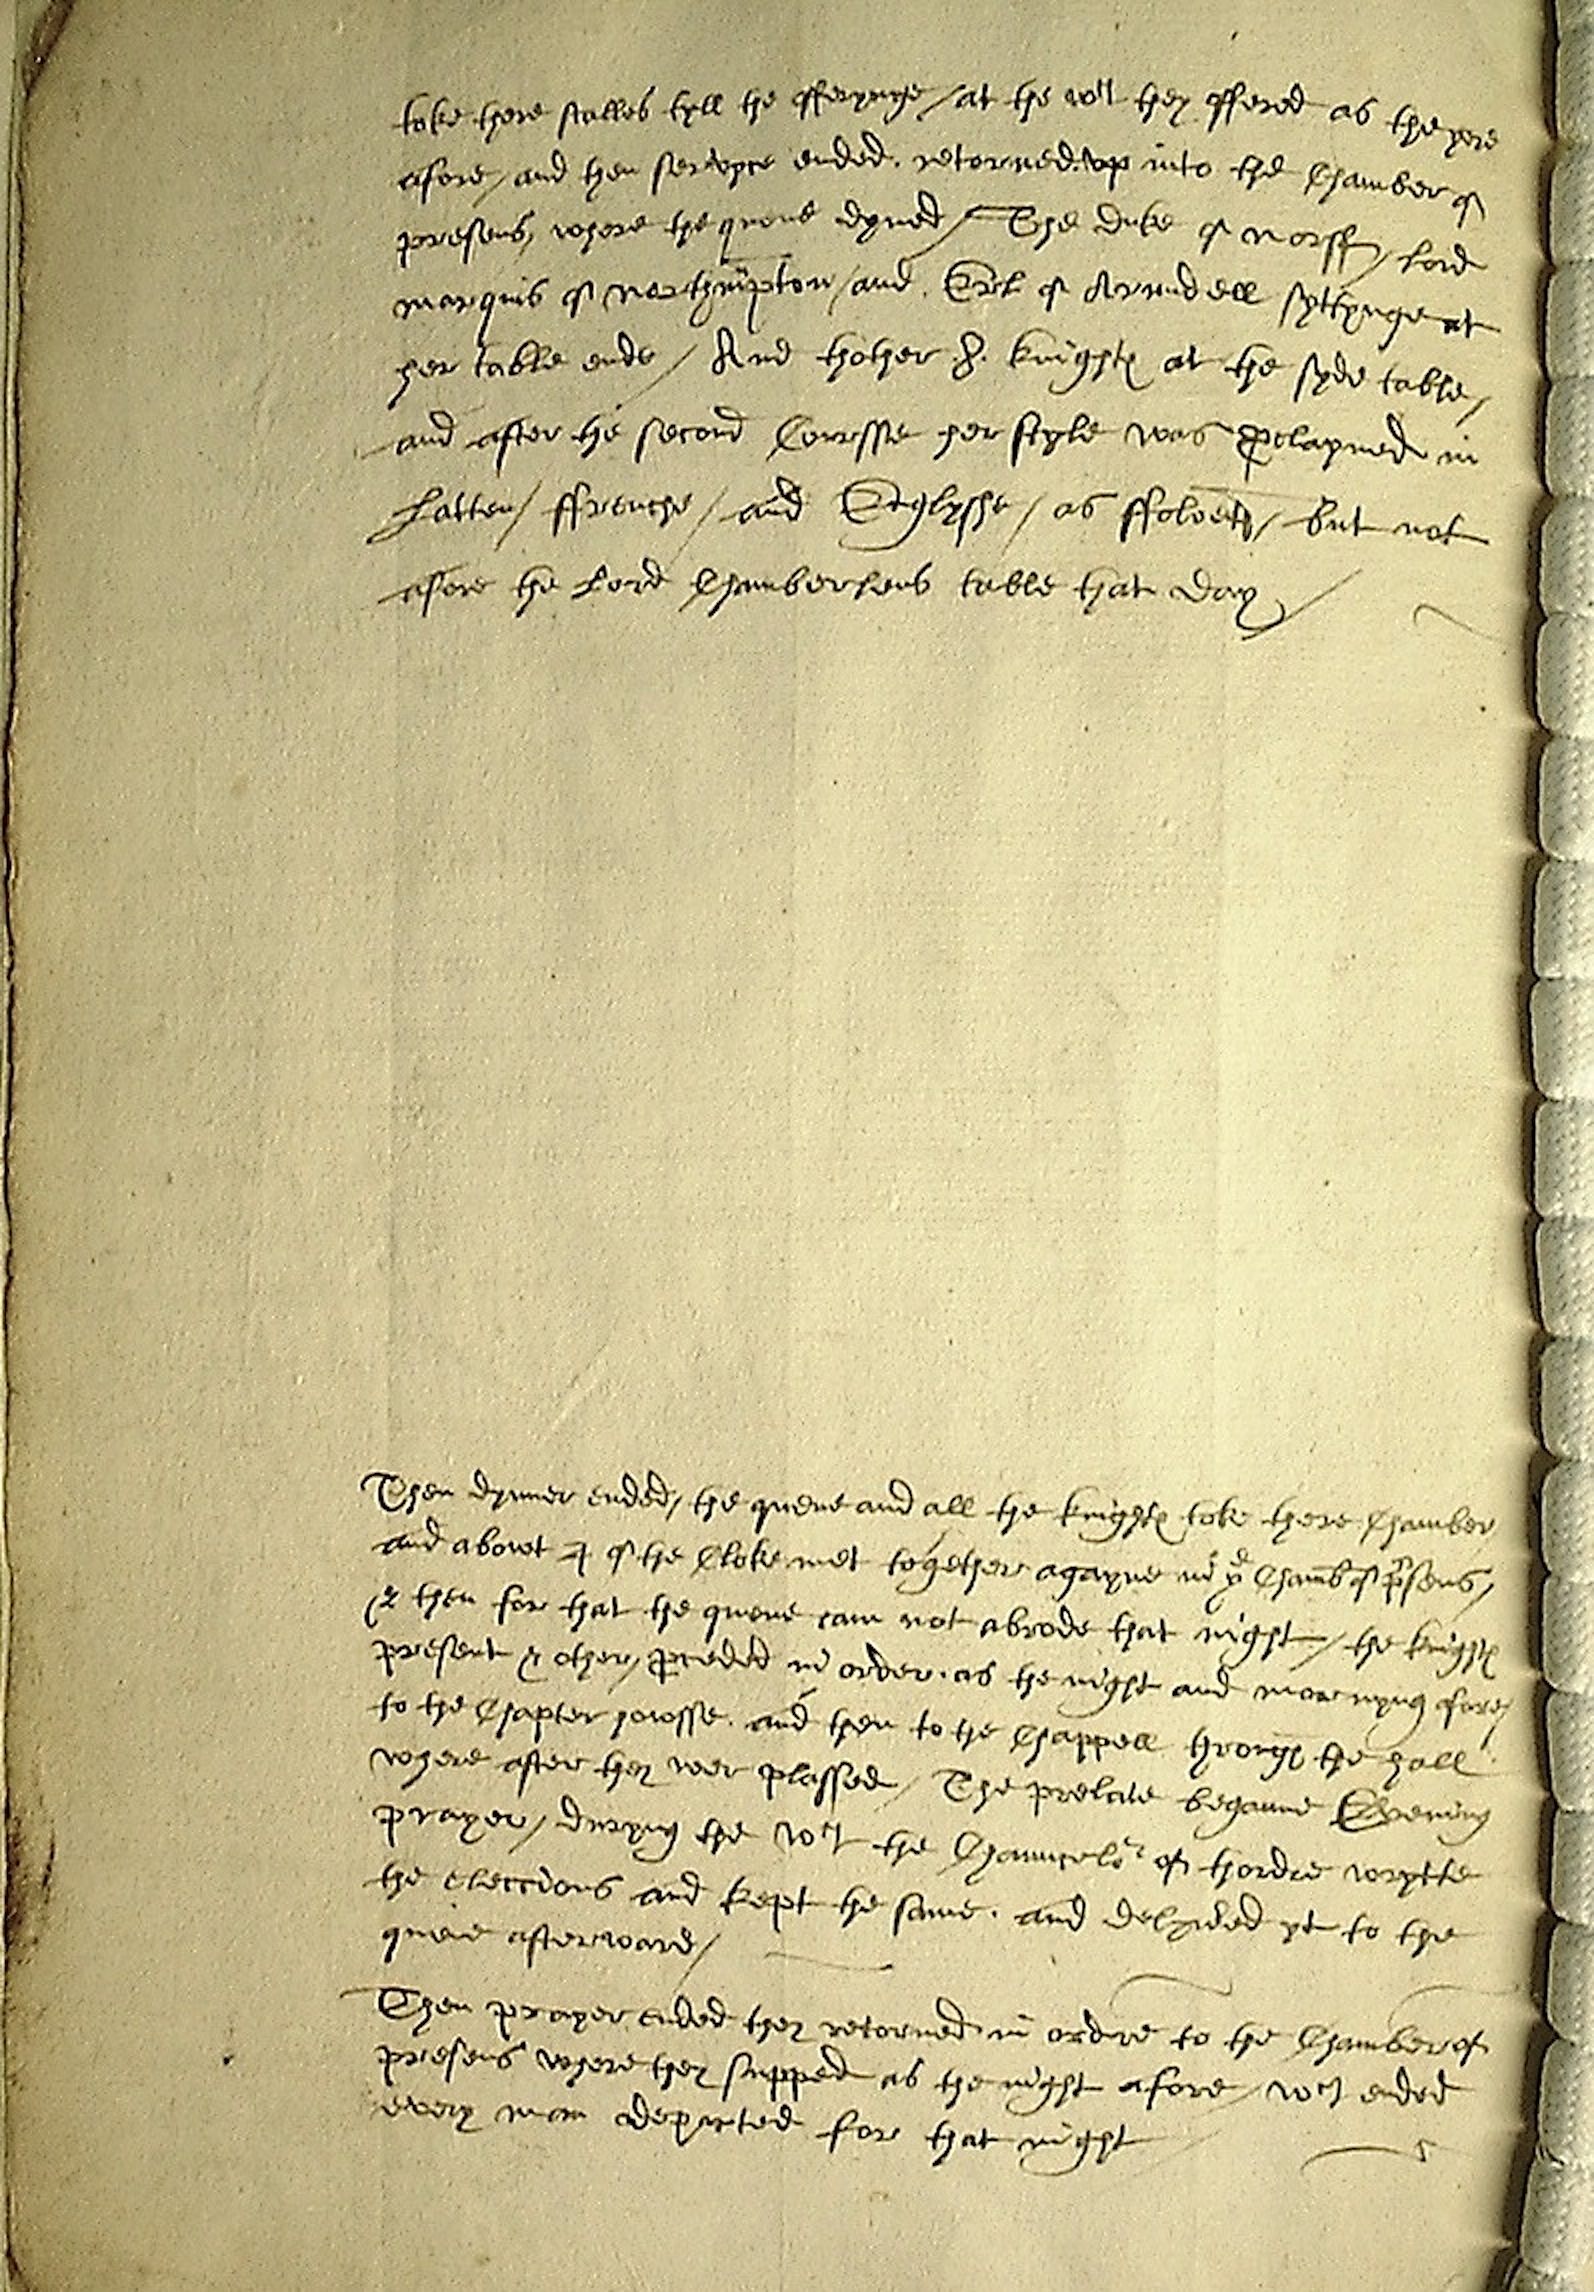 toke there stalles tyll the offerynge / at the wch they offered as the yere
afore / and then servyce ended . retorned up into the Chamber of
presens, where the quene dyned / The duke of norff / lord
marquis of Northmpton / and . Erl of Arundell syttynge at
her table ende / And thother 8. knightes at the syde table /
and after the second Coursse her style was pclaymed in
Latten / ffrenche / and Englysshe / as ffoloeth / but not
afore the Lord Chamberlens table that day /
Then dynner ended / the quene and all the knightes toke there Chamber /
and abowt 4 of the Cloke met together agayne in ye Chamb of psens /
& then for that the quene cam not abrode that night / the knightes
present & other / pceded in order . as the night and mornyng afore /
to the Chapter howsse . and then to the Chappell throughe the hall .
where after they wer plassed / The prelate beganne Evening
prayer / duryng the wch the Chauncelor of thordre wrytte
the elections and kept the same . and delyved yt to the
quene afterward /
Then prayer ended they retorned in ordre to the Chamber of
presens where they supped as the night afore / wch ended
every man departed for that night